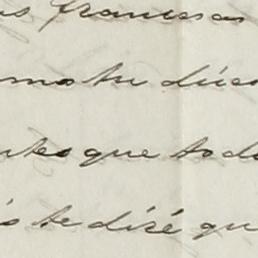 francesas
mo tu dices
antes que todo
te diré qu